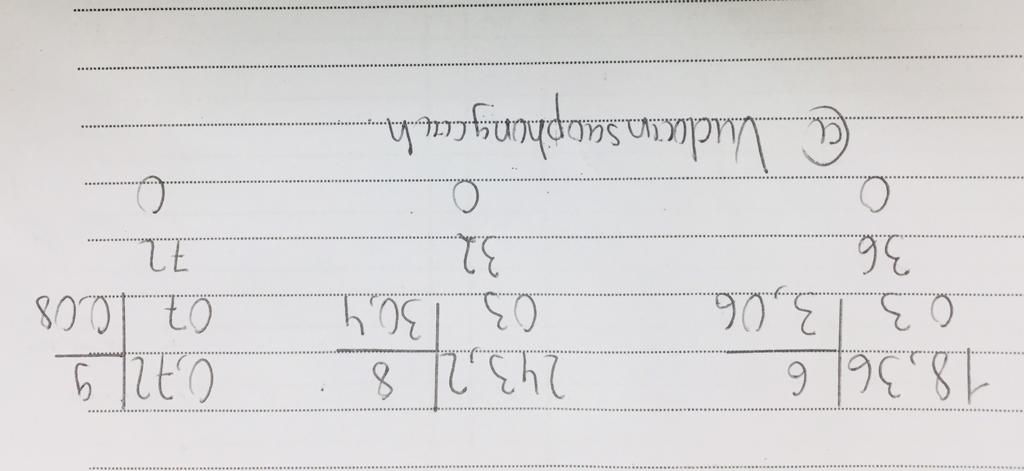 18,36 | 6 243,2 | 8 0,72 | 9
0 3 | 3,06 03 | 30,4 07 | 0,08
36 32 72
0 0 0